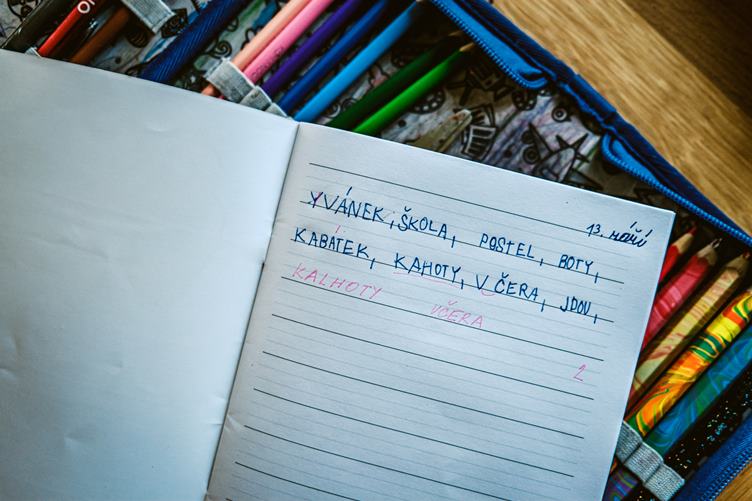 13. září
YVÁNEK, ŠKOLA, POSTEL, BOTY,
KABÁTEK, KAHOTY, V ČERA, JDOU,
KALHOTY VČERA
2